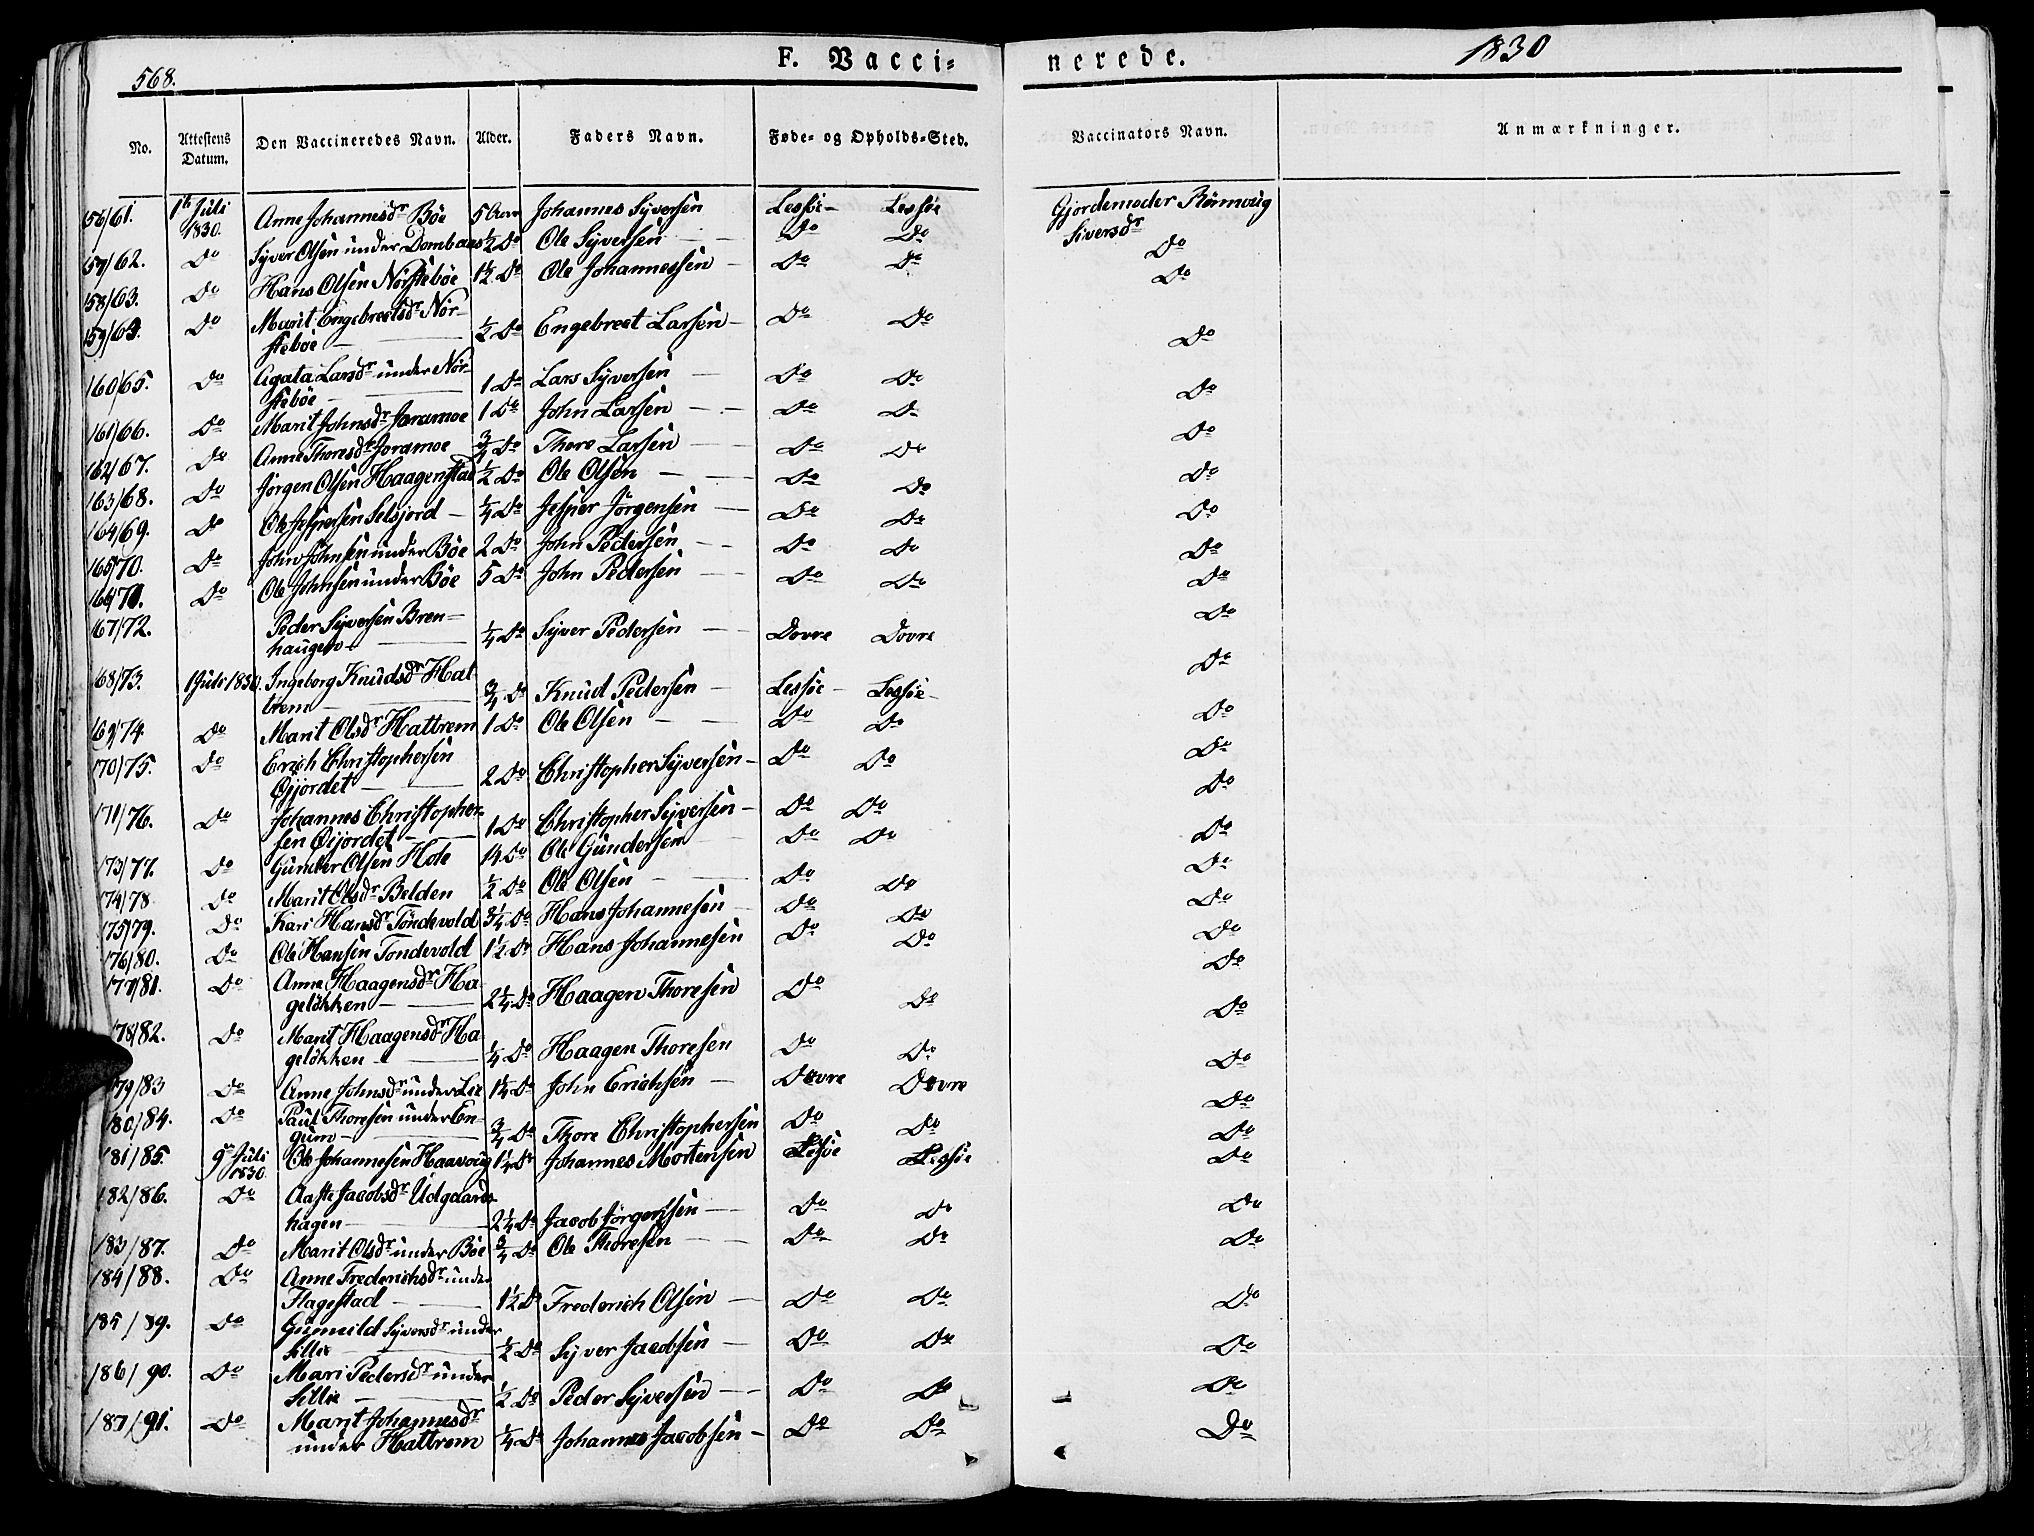 568.
F. Vacci=
nerede.
1830
No. Attestens Datum. Den Vaccineredes Navn. Alder. Faders Navn. Føde- og Opholds-Sted. Vaccinators Navn. Anmærkninger.
156/61. 1ste Juli 1830. Anne Johannesdr Böe 5 Aar Johannes Syversen Lessöe - Lessöe Gjordemoder Rönnoug Siversdr
157/62. Do Syver Olsen under Dombaas ½ Do Ole Syversen Do Do Do
158/63. Do Hans Olsen Nörsteböe 1½ Do Ole Johannessen - Do Do Do
159/64. Do Marit Engebrectsdr Nör-
steböe ½ Do Engebrect Larsen - Do Do Do
160/65. Do Agata Larsdr under Nör-
steböe 1 Do Lars Syversen Do Do Do
161/66. Do Marit Johnsdr Joramoe 1 Do John Larsen Do Do Do
162/67. Do Anne Thoresdr Joramoe ¾ Do Thore Larsen Do Do Do
163/68. Do Jörgen Olsen Haagenstad ½ Do Ole Olsen Do Do Do
164/69. Do Ole Jespersen Selsjord ¼ Do Jesper Jörgensen Do Do Do
165/70. Do John Johnsen under Böe 2 Do John Pedersen Do Do Do
166/71. Do Ole Johnsen under Böe 5 Do John Pedersen Do Do Do
167/72. Peder Syversen Bren-
haugen ¼ Do Syver Pedersen Dovre Dovre Do
168/73. 1 Juli 1830. Ingeborg Knudsdr Hat-
trem ¾ Do Knud Pedersen Lessöe - Lessöe - Do
169/74 Do Marit Olsdr Hattrem 1 Do Ole Olsen Do Do Do
170/75. Do Erich Christophersen
Öijordet 2 Do Christopher Syversen - Do Do Do
171/76. Do Johannes Christopher-
sen Öijordet 1 Do Christopher Syversen - Do Do Do
173/77. Do Gunder Olsen Hole Do Ole Gundersen Do Do Do
174/78 Do Marit Olsdr Belden ½ Do Ole Olsen Do Do Do
175/79. Do Kari Hansdr Töndevold ¾ Do Hans Johannesen Do Do Do
176/80. Do Ole Hansen Tondevoldt 1½ Do Hans Johannesen Do Do Do
177/81. Do Anne Haagensdr Ha-
gelökken 2¼ Do Haagen Thoresen Do Do Do
178/82. Do Marit Haagensdr Ha-
gelökken ¼ Do Haagen Thoresen Do Do Do
179/83 Do Anne Johnsdr under Lie 1¼ Do John Erichsen Dovre Dovre Do
180/84. Do Paul Thoresen under En-
gum ¾ Do Thore Christophersen Do Do Do
181/85. 9de Juli 1830. Ole Johannesen Haavoug 1¼ Do Johannes Mortensen Lesöe Lessöe Do
182/86. Do Aaste Jacobsdr Udgaards-
hagen 2¼ Do Jacob Jörgensen Do Do Do
183/87. Do Marit Olsdr under Böe ¾ Do Ole Thoresen Do Do Do
184/88. Do Anne Frederichsdr under
Flagestad 1½ Do Frederich Olsen Do Do Do
185/89. Do Gunnild Syversdr under
Lillie ½ Do Syver Jacobsen Do Do Do
186/90. Do Mari Pedersdr under
Lillie ½ Do Peder Syversen Do Do Do
187/91. Do Marit Johannesdr
under Hattrem ¼ Do Johannes Jacobsen - Do Do Do